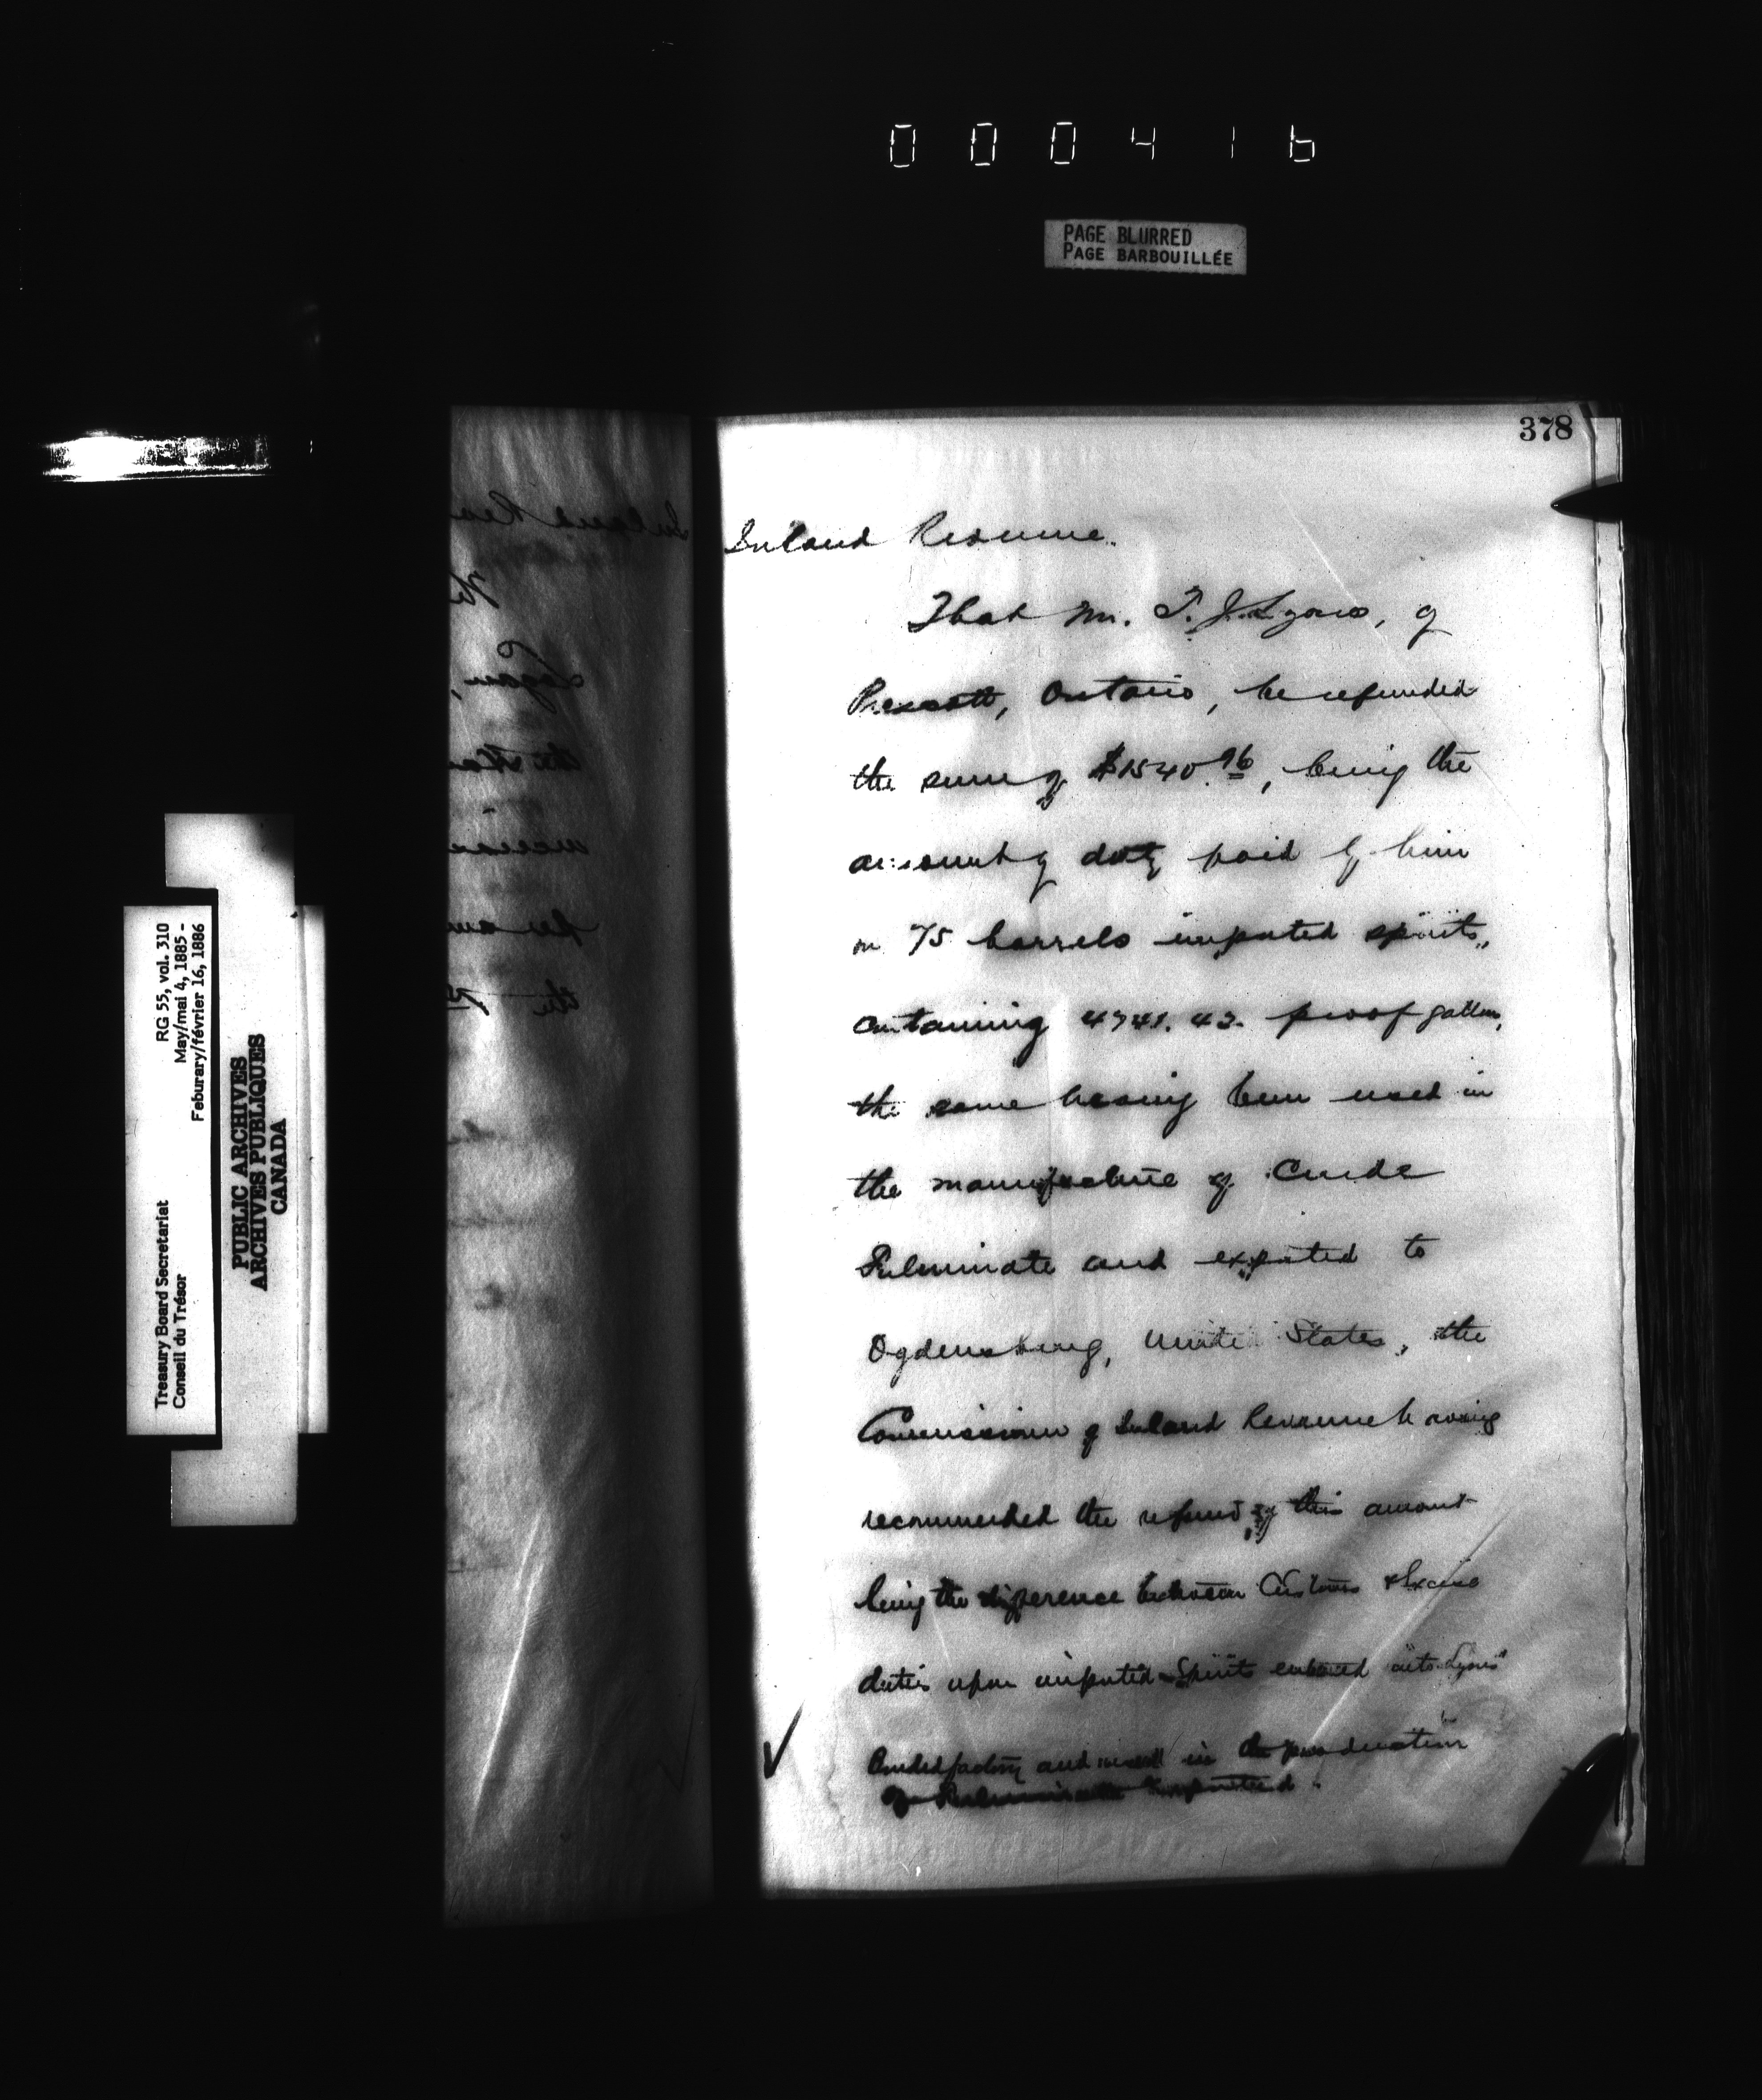 000416
PAGE BLURRED
PAGE BARBOUILLÉE
378
RG 55, vol. 310
May/mai 4, 1885 -
Feburary/février 16, 1886
Treasury Board Secretariat
Conseil du Trésor
PUBLIC ARCHIVES
ARCHIVES PUBLIQUES
CANADA
Inland Revenue.
That Mr. T. J. Lyons, of
Prescott, Ontario, be refunded
the sum of $1540.96, being the
amount of duty paid by him
on 75 barrels imported spirits,
containing 4741.42 proof gallons,
the same having been used in
the manufacture of Crude
Fulminate and exported to
Ogdensburg, United States, the
Commissioner of Inland Revenue having
recommended the refund of this amount
being the difference between Customs & Excise
duties upon imported Spirits entered into Lyons'
Bonded factory and used in the production
of Fulminate Exported.